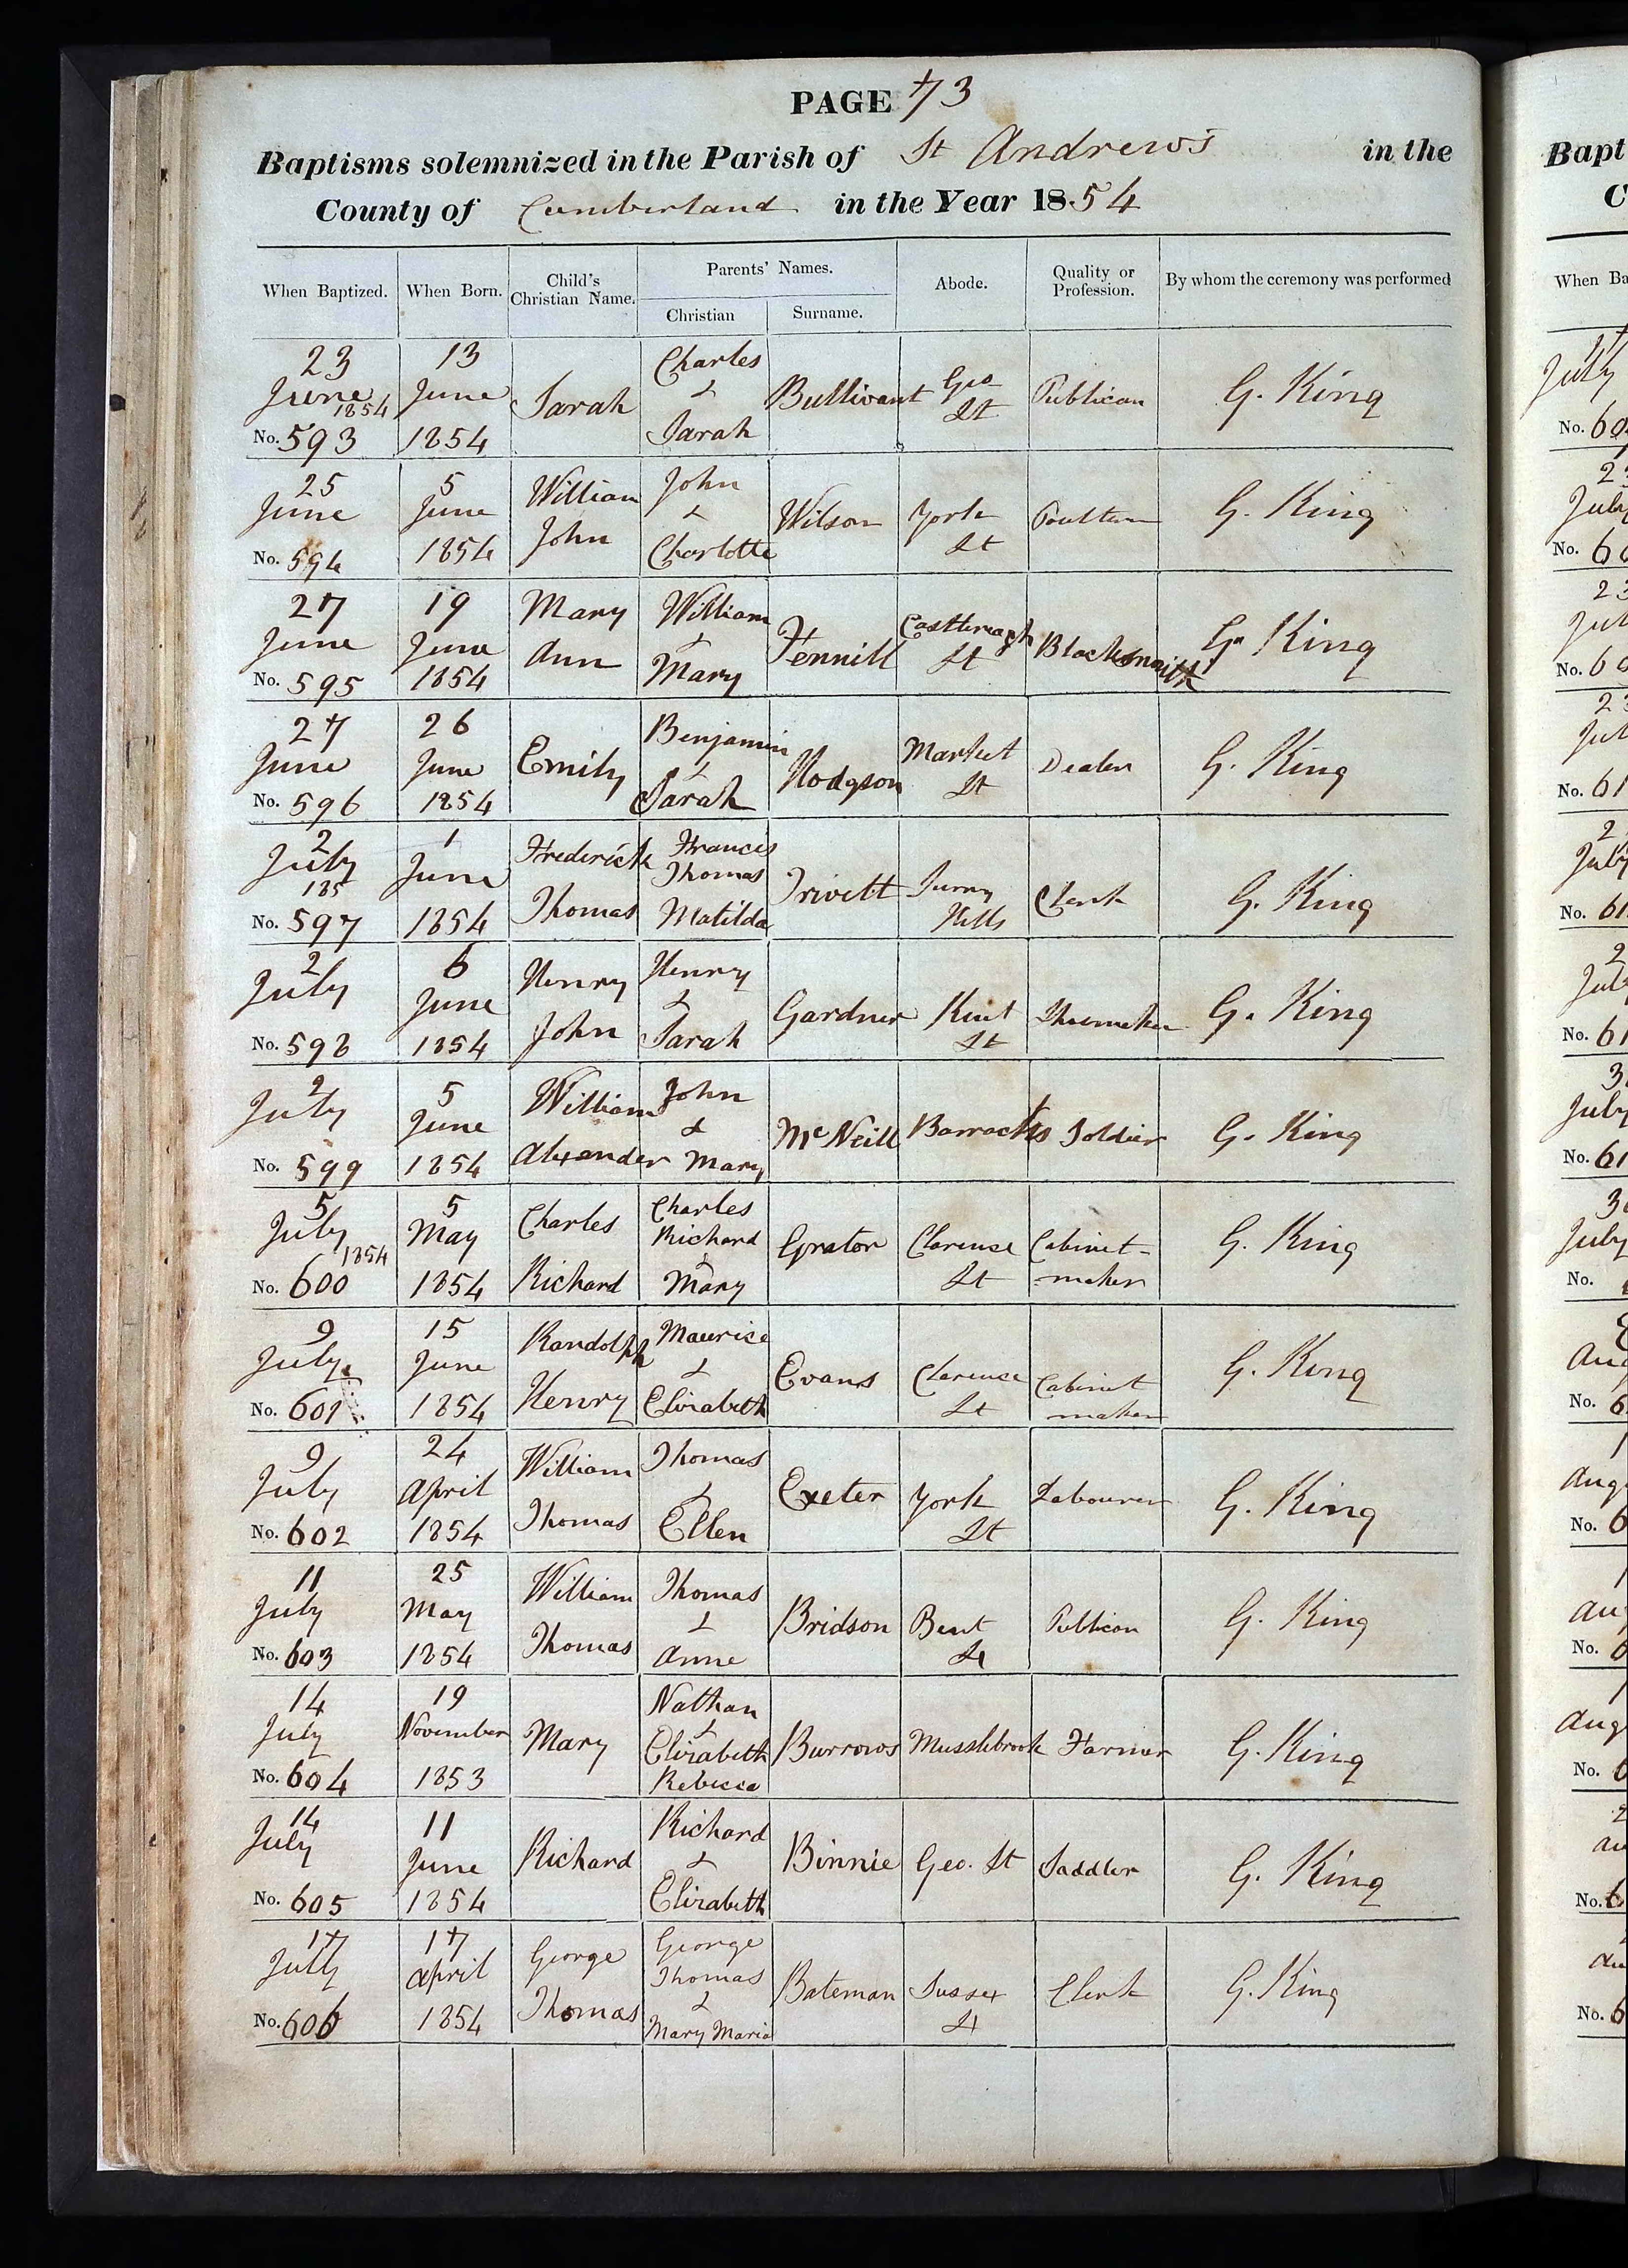 PAGE 73
Baptisms solemnized in the Parish of St Andrew's in the
County of Cumberland in the Year 1854
When Baptized. When Born. Child's Christian Name. Parents' Names. Christian Surname. Abode. Quality or Profession. By whom the ceremony was performed
23 June 1854 No. 593 13 June 1854 Sarah Charles & Sarah Bullivant Geo St Publican G. King
25 June No. 594 5 June 1854 William John John & Charlotte Wilson York St G. King
27 June No. 595 19 June 1854 Mary Ann William & Mary Fennill St Blacksmith G. King
27 June No. 596 26 June 1854 Emily Benjamin & Sarah Hodgson Market St Dealer G. King
2 July 185 No. 597 1 June 1854 Frederick Thomas Francis Thomas Matilda Trivett Surry Hills Clerk G. King
2 July No. 598 6 June 1854 Henry John Henry & Sarah Gardner Kent St Shoemaker G. King
2 July No. 599 5 June 1854 William Alexander John & Mary McNeill Barracks Soldier G. King
5 July 1854 No. 600 5 May 1854 Charles Richard Charles Richard & Mary Grator Clarence St Cabinet-maker G. King
9 July No. 601 15 June 1854 Randolph Henry Maurice & Elizabeth Evans Clarence St Cabinet maker G. King
9 July No. 602 24 April 1854 William Thomas Thomas & Ellen Exeter York St Labourer G. King
11 July No. 603 25 May 1854 William Thomas Thomas & Anne Bridson Bent St Publican G. King
14 July No. 604 19 November 1853 Mary Nathan & Elizabeth Rebecca Burrows Musslebrook Farmer G. King
14 July No. 605 11 June 1854 Richard Richard & Elizabeth Binnie Geo. St Saddler G. King
17 July No. 606 17 April 1854 George Thomas George Thomas & Mary Maria Bateman Sussex St Clerk G. King